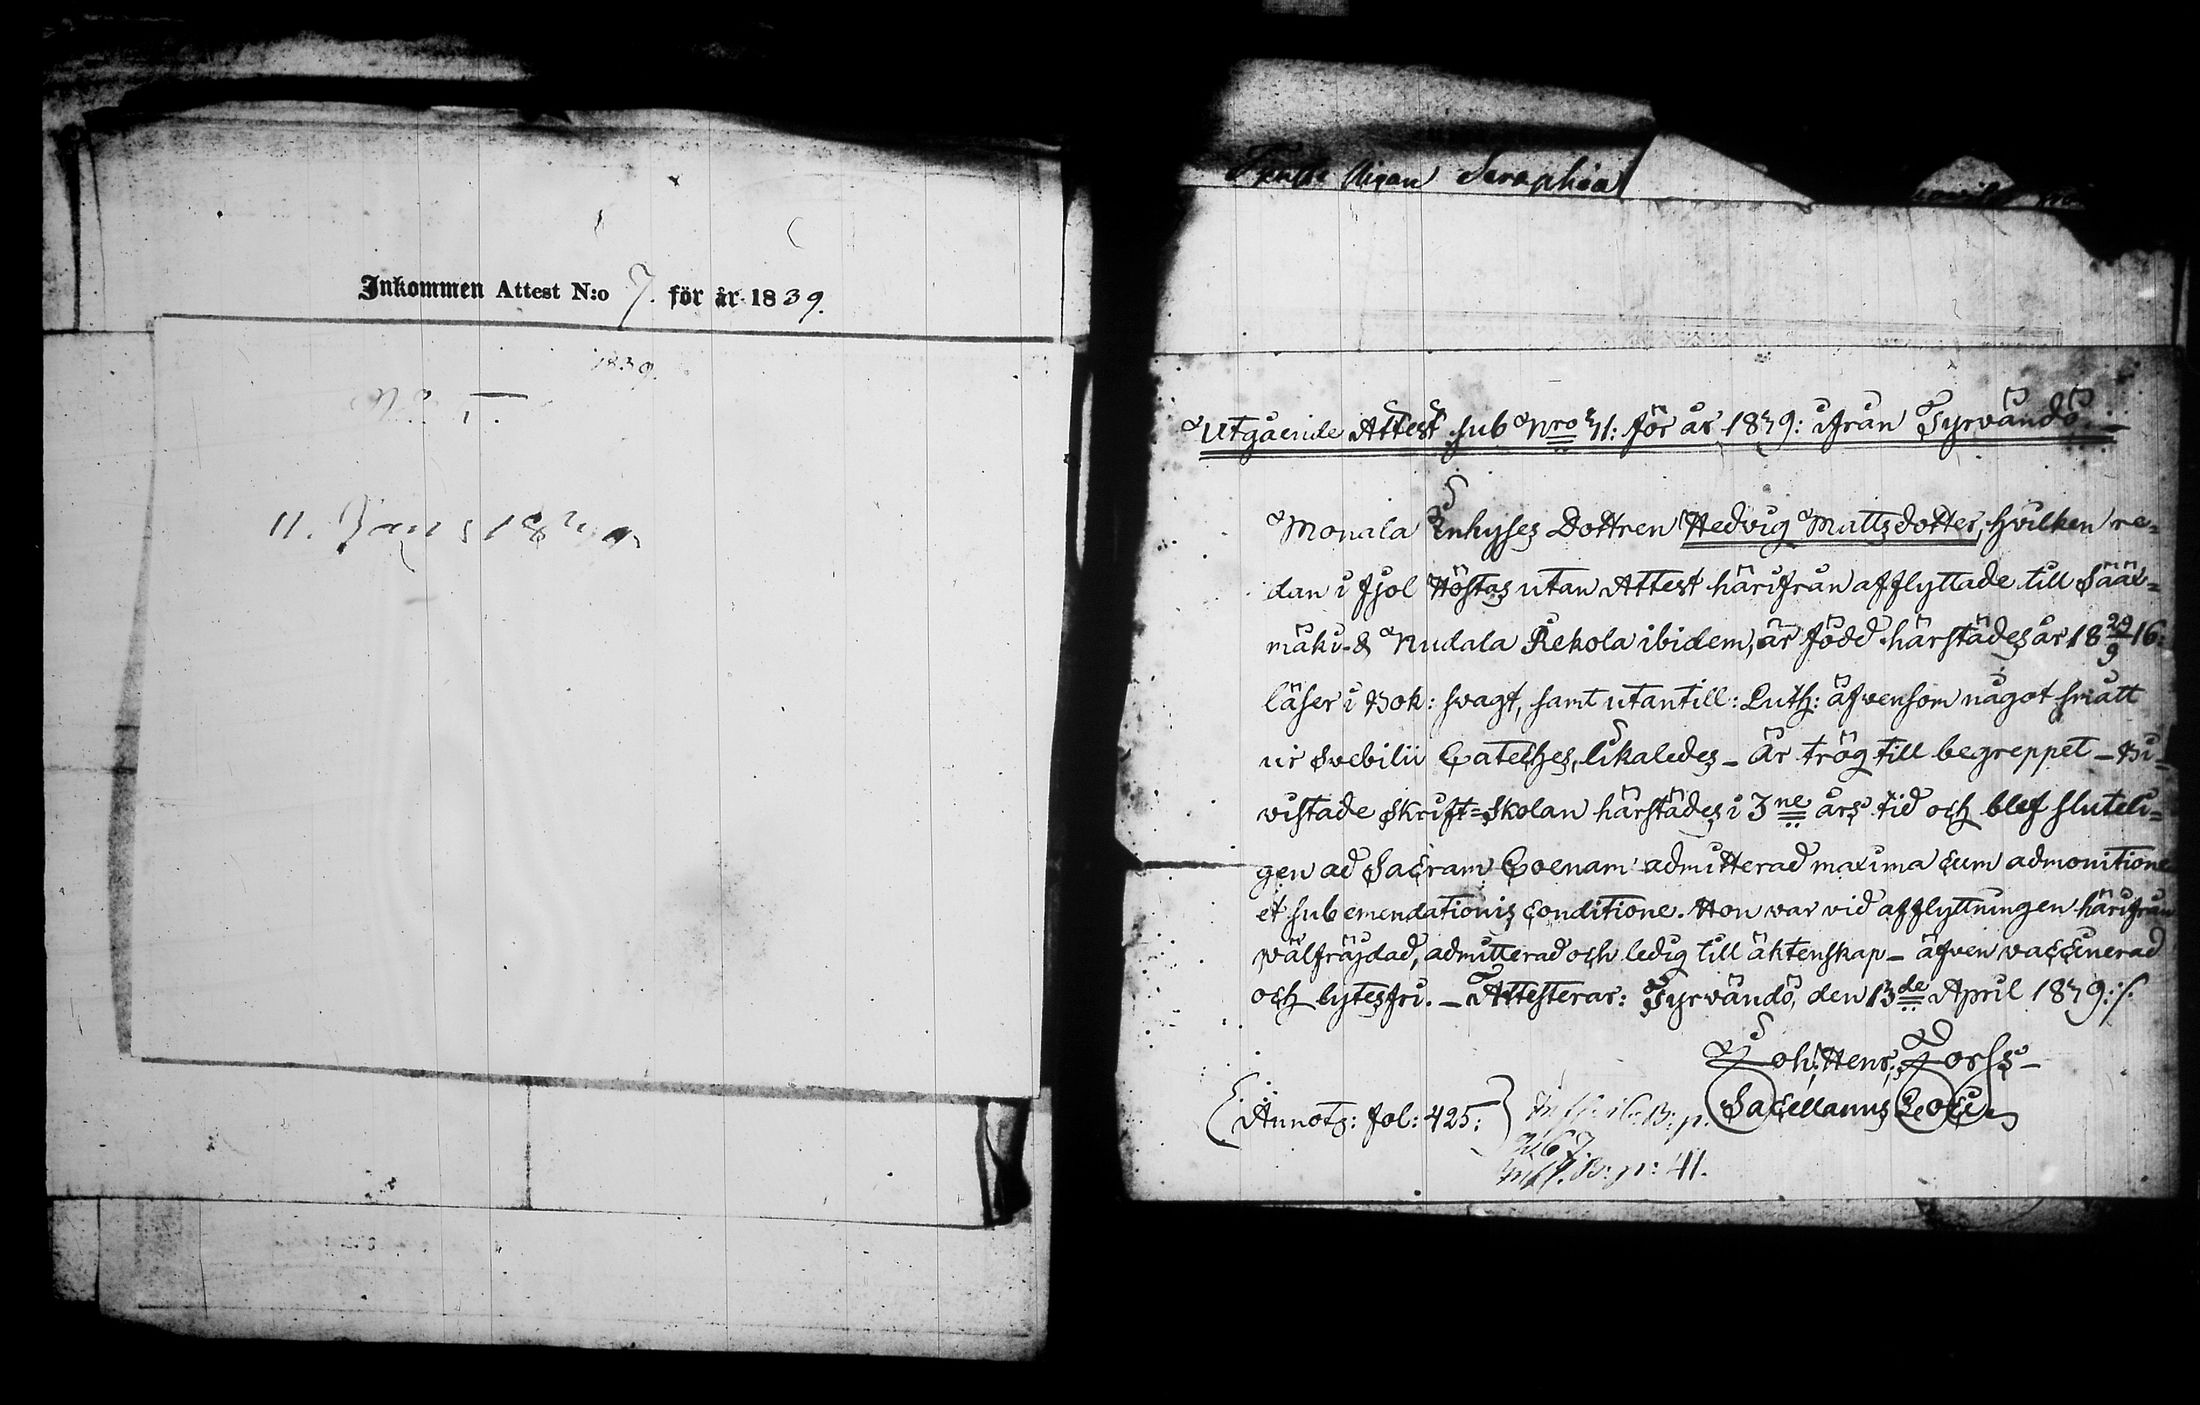 Inkommen Attest N:o 7. för år 1839.
1839.
N:o
11.
Pigan Seraphia
Utgående Attest sub Nro 41: för år 1839: ifrån Tyrvändö.
Monala Inhyses Dottren Hedvig Mattsdotter, hvilken re=
dan i fjol Höstas utan Attest härifrån afflyttade till Sääx=
mäki & Nudala Rekola ibidem, är född härstädes år 18 29/9 16:
läser i Bok: svagt, samt utantill: Luth: äfvensom något smått
ur Svebilii Cateches, likaledes – Är trög till begreppet – Bi=
vistade Skrift=Skolan härstädes i 3ne års tid och blef sluteli=
gen ad Sacram Coenam admitterad maxima cum admonitione
et sub emendationis conditione. Hon war vid afflyttningen härifrån
wälfräjdad, admitterad och ledig till äktenskap – äfven vaccinerad
och lytesfri. – Attesterar: Tyrvändö, den 13de April 1839:/.
Joh: Henr: Forss –
Sacellanus Loci
{Annot: fol: 425:}
267.
B: p: 41.